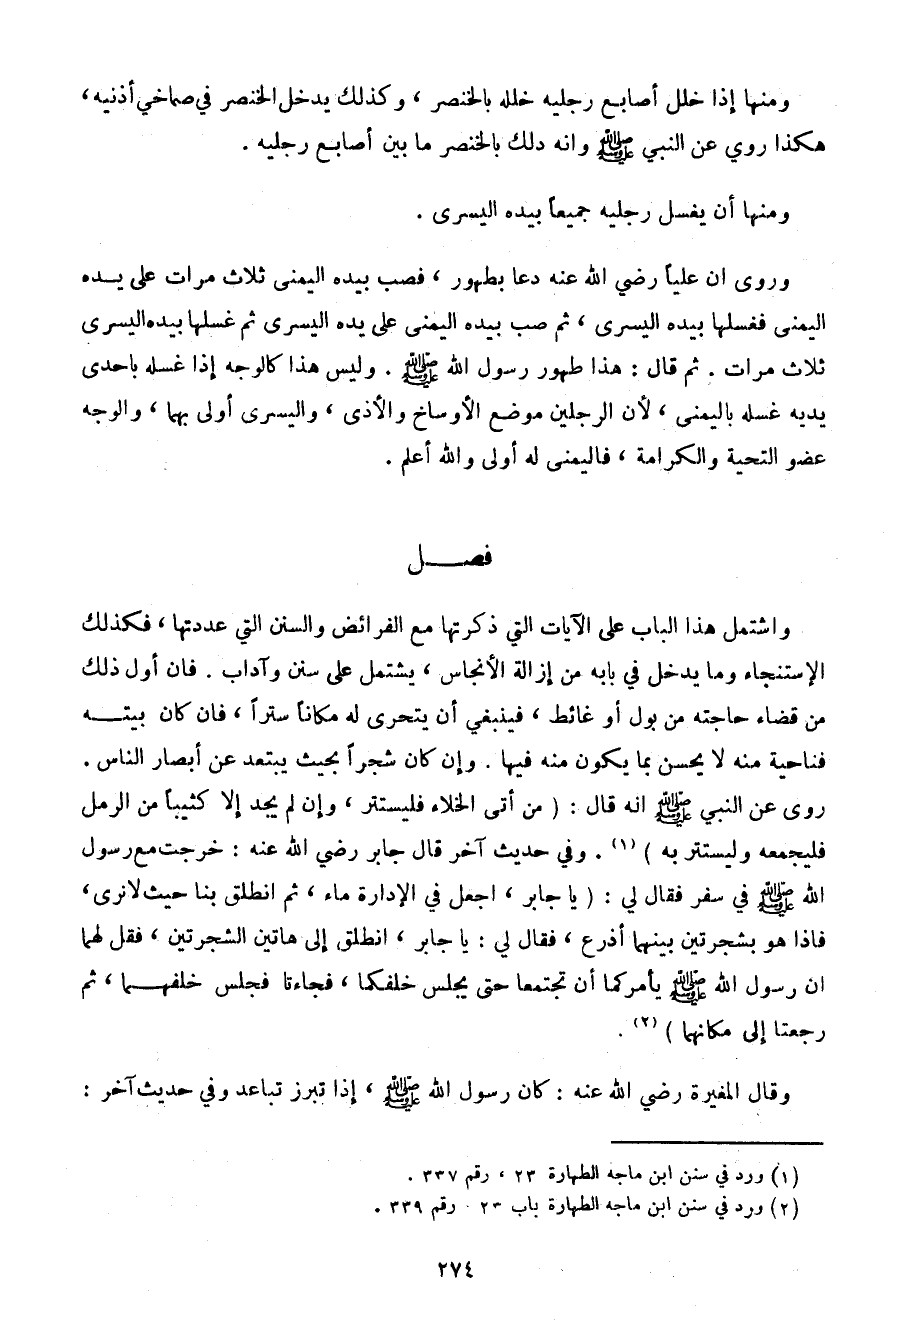 ومنها إذا خلل أصابع رجليه خلله بالخنصر ، وكذلك يدخل الخنصر في صماخي أذنيه ،
هكذا روي عن النبي ﷺ وانه دلك بالخنصر ما بين أصابع رجليه .
ومنها أن يغسل رجليه جميعاً بيده اليسرى .
وروى ان علياً رضي الله عنه دعا بطهور ، فصب بيده اليمنى ثلاث مرات على يــده
اليمنى فغسلها بيده اليسرى ، ثم صب بيده اليمنى على يده اليسرى ثم غسلها بيده اليسرى
ثلاث مرات . ثم قال : هذا طهور رسول الله ﷺ . وليس هذا كالوجه إذا غسله باحدى
يديه غسله باليمنى ، لأن الرجلين موضع الأوساخ والأذى ، واليسرى أولى بهما ، والوجه
عضو التحية والكرامة ، فاليمنى له أولى والله أعلم .
فصـــل
واشتمل هذا الباب على الآيات التي ذكرتها مع الفرائض والسنن التي عددتها ، فكذلك
الإستنجاء وما يدخل في بابه من إزالة الأنجاس ، يشتمل على سنن وآداب . فان أول ذلك
من قضاء حاجته من بول أو غائط ، فينبغي أن يتحرى له مكاناً ستراً ، فان كان بيتــه
فناحية منه لا يحسن بما يكون منه فيها . وإن كان شجراً بحيث يبتعد عن أبصار الناس .
روى عن النبي ﷺ انه قال : ( من أتى الخلاء فليستتر ، وإن لم يجد إلا كثيباً من الرمل
فليجمعه وليستتر به ) (١) . وفي حديث آخر قال جابر رضي الله عنه : خرجت مع رسول
الله ﷺ في سفر فقال لي : ( يا جابر ، اجعل في الإدارة ماء ، ثم انطلق بنا حيث لا نرى ،
فاذا هو بشجرتين بينهما أذرع ، فقال لي : يا جابر ، انطلق إلى هاتين الشجرتين ، فقل لهما
ان رسول الله ﷺ يأمركما أن تجتمعا حتى يجلس خلفكما ، فجاءتا فجلس خلفهــما ، ثم
رجعتا إلى مكانهما ) (٢) .
وقال المغيرة رضي الله عنه : كان رسول الله ﷺ ، إذا تبرز تباعد وفي حديث آخر :
(١) ورد في سنن ابن ماجه الطهارة ٢٣ ، رقم ٣٣٧ .
(٢) ورد في سنن ابن ماجه الطهارة باب ٢٣ . رقم ٣٣٩ .
٢٧٤